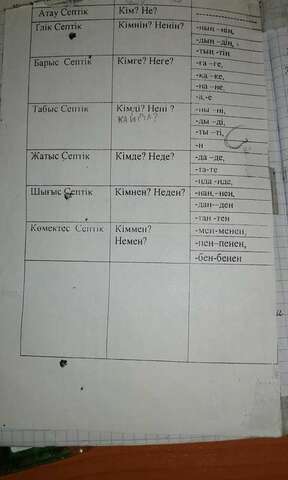 Атау Септік Кім? Не? ----------
Ілік Септік Кімнін? Ненін? -нын -нін,
-дын -дін,
-тын -тін
Барыс Септік Кімге? Неге? -ға -ге,
-ка -ке,
-на -не,
-а,-е
Табыс Септік Кімді? Нені ? -ны -ні,
-ды -ді,
-ты -ті,
-н
Жатыс Септік Кімде? Неде? -да -де,
-та-те
-нда -нде,
Шығыс Септік Кімнен? Неден? -нан, -нен,
-дан--ден
-тан -тен
Көмектес Септік Кіммен? -мен-менен,
Немен? -пен-пенен,
-бен-бенен